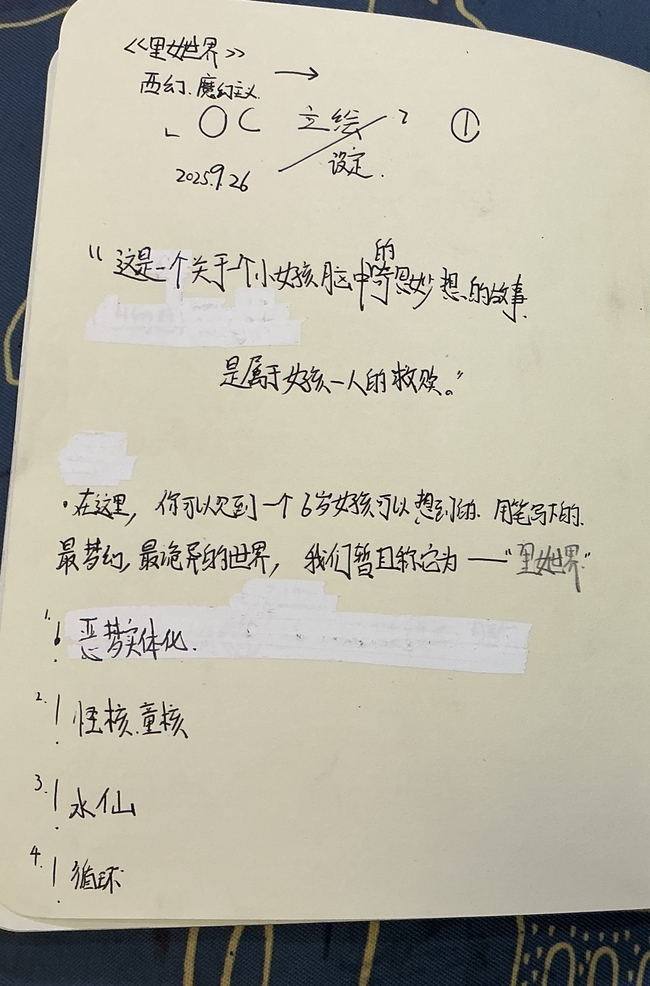 《里她世界》
西幻、魔幻主义
OC 立绘 ①
设定.
2025.9.26
"这是一个关于一个小女孩脑中的奇思妙想的故事
是属于女孩一人的救赎。"
·在这里,你可以见到一个6岁女孩可以想到的.用笔写下的.
最梦幻,最诡异的世界,我们暂且称它为——"里她世界"
1. ! 恶梦实体化.
2. ! 怪核.童核
3. ! 水仙
4. ! 循环